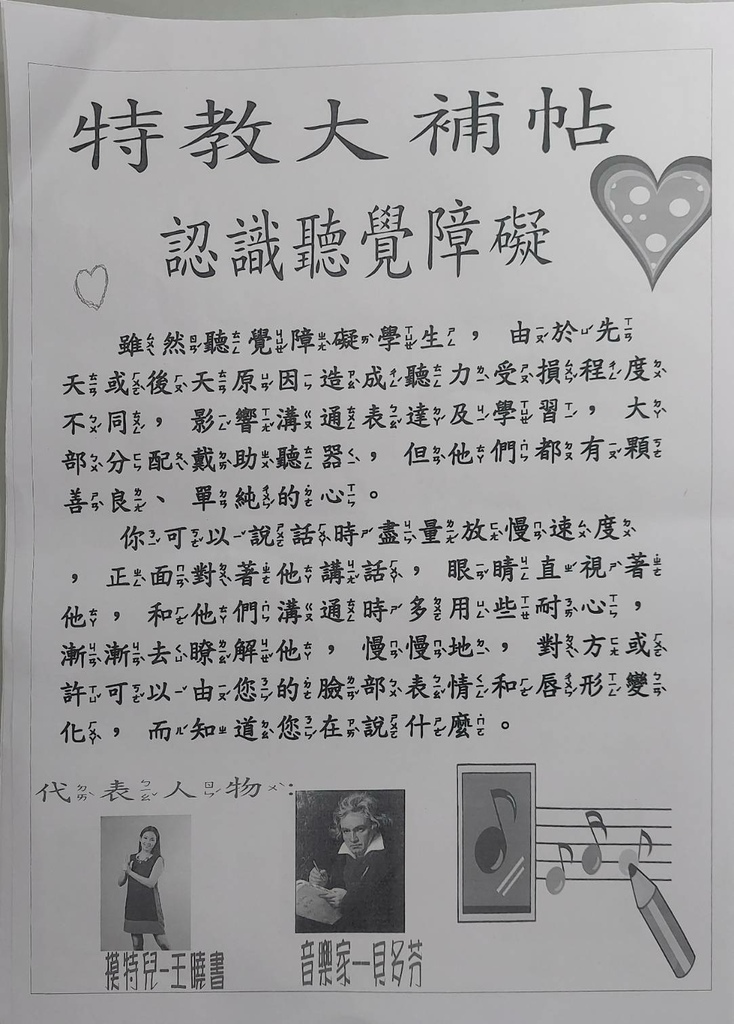 特教大補帖
認識聽覺障礙
雖然聽覺障礙學生，由於先
天或後天原因造成聽力受損程度
不同，影響溝通表達及學習，大
部分配戴助聽器，但他們都有顆
善良、單純的心。
你可以說話時盡量放慢速度
，正面對著他講話，眼睛直視著
他，和他們溝通時多用些耐心，
漸漸去瞭解他，慢慢地，對方或
許可以由您的臉部表情和唇形變
化，而知道您在說什麼。
代表人物：
模特兒-王曉書
音樂家—貝多芬